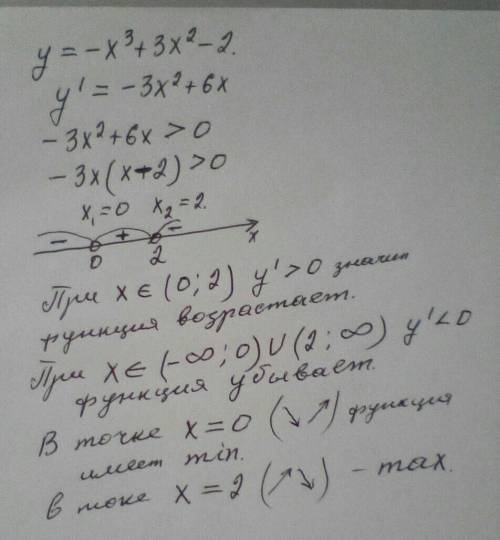 y = -x³ + 3x² - 2.
y' = -3x² + 6x
-3x² + 6x > 0
-3x(x-2) > 0
x₁=0 x₂=2.
- + -
0 2 x
При x ∈ (0; 2) y' > 0 значит
функция возрастает.
При x ∈ (-∞; 0) ∪ (2; ∞) y' < 0
функция убывает.
В точке x = 0 (↘ ↗) функция
имеет min.
В токе x = 2 (↗↘) - max.